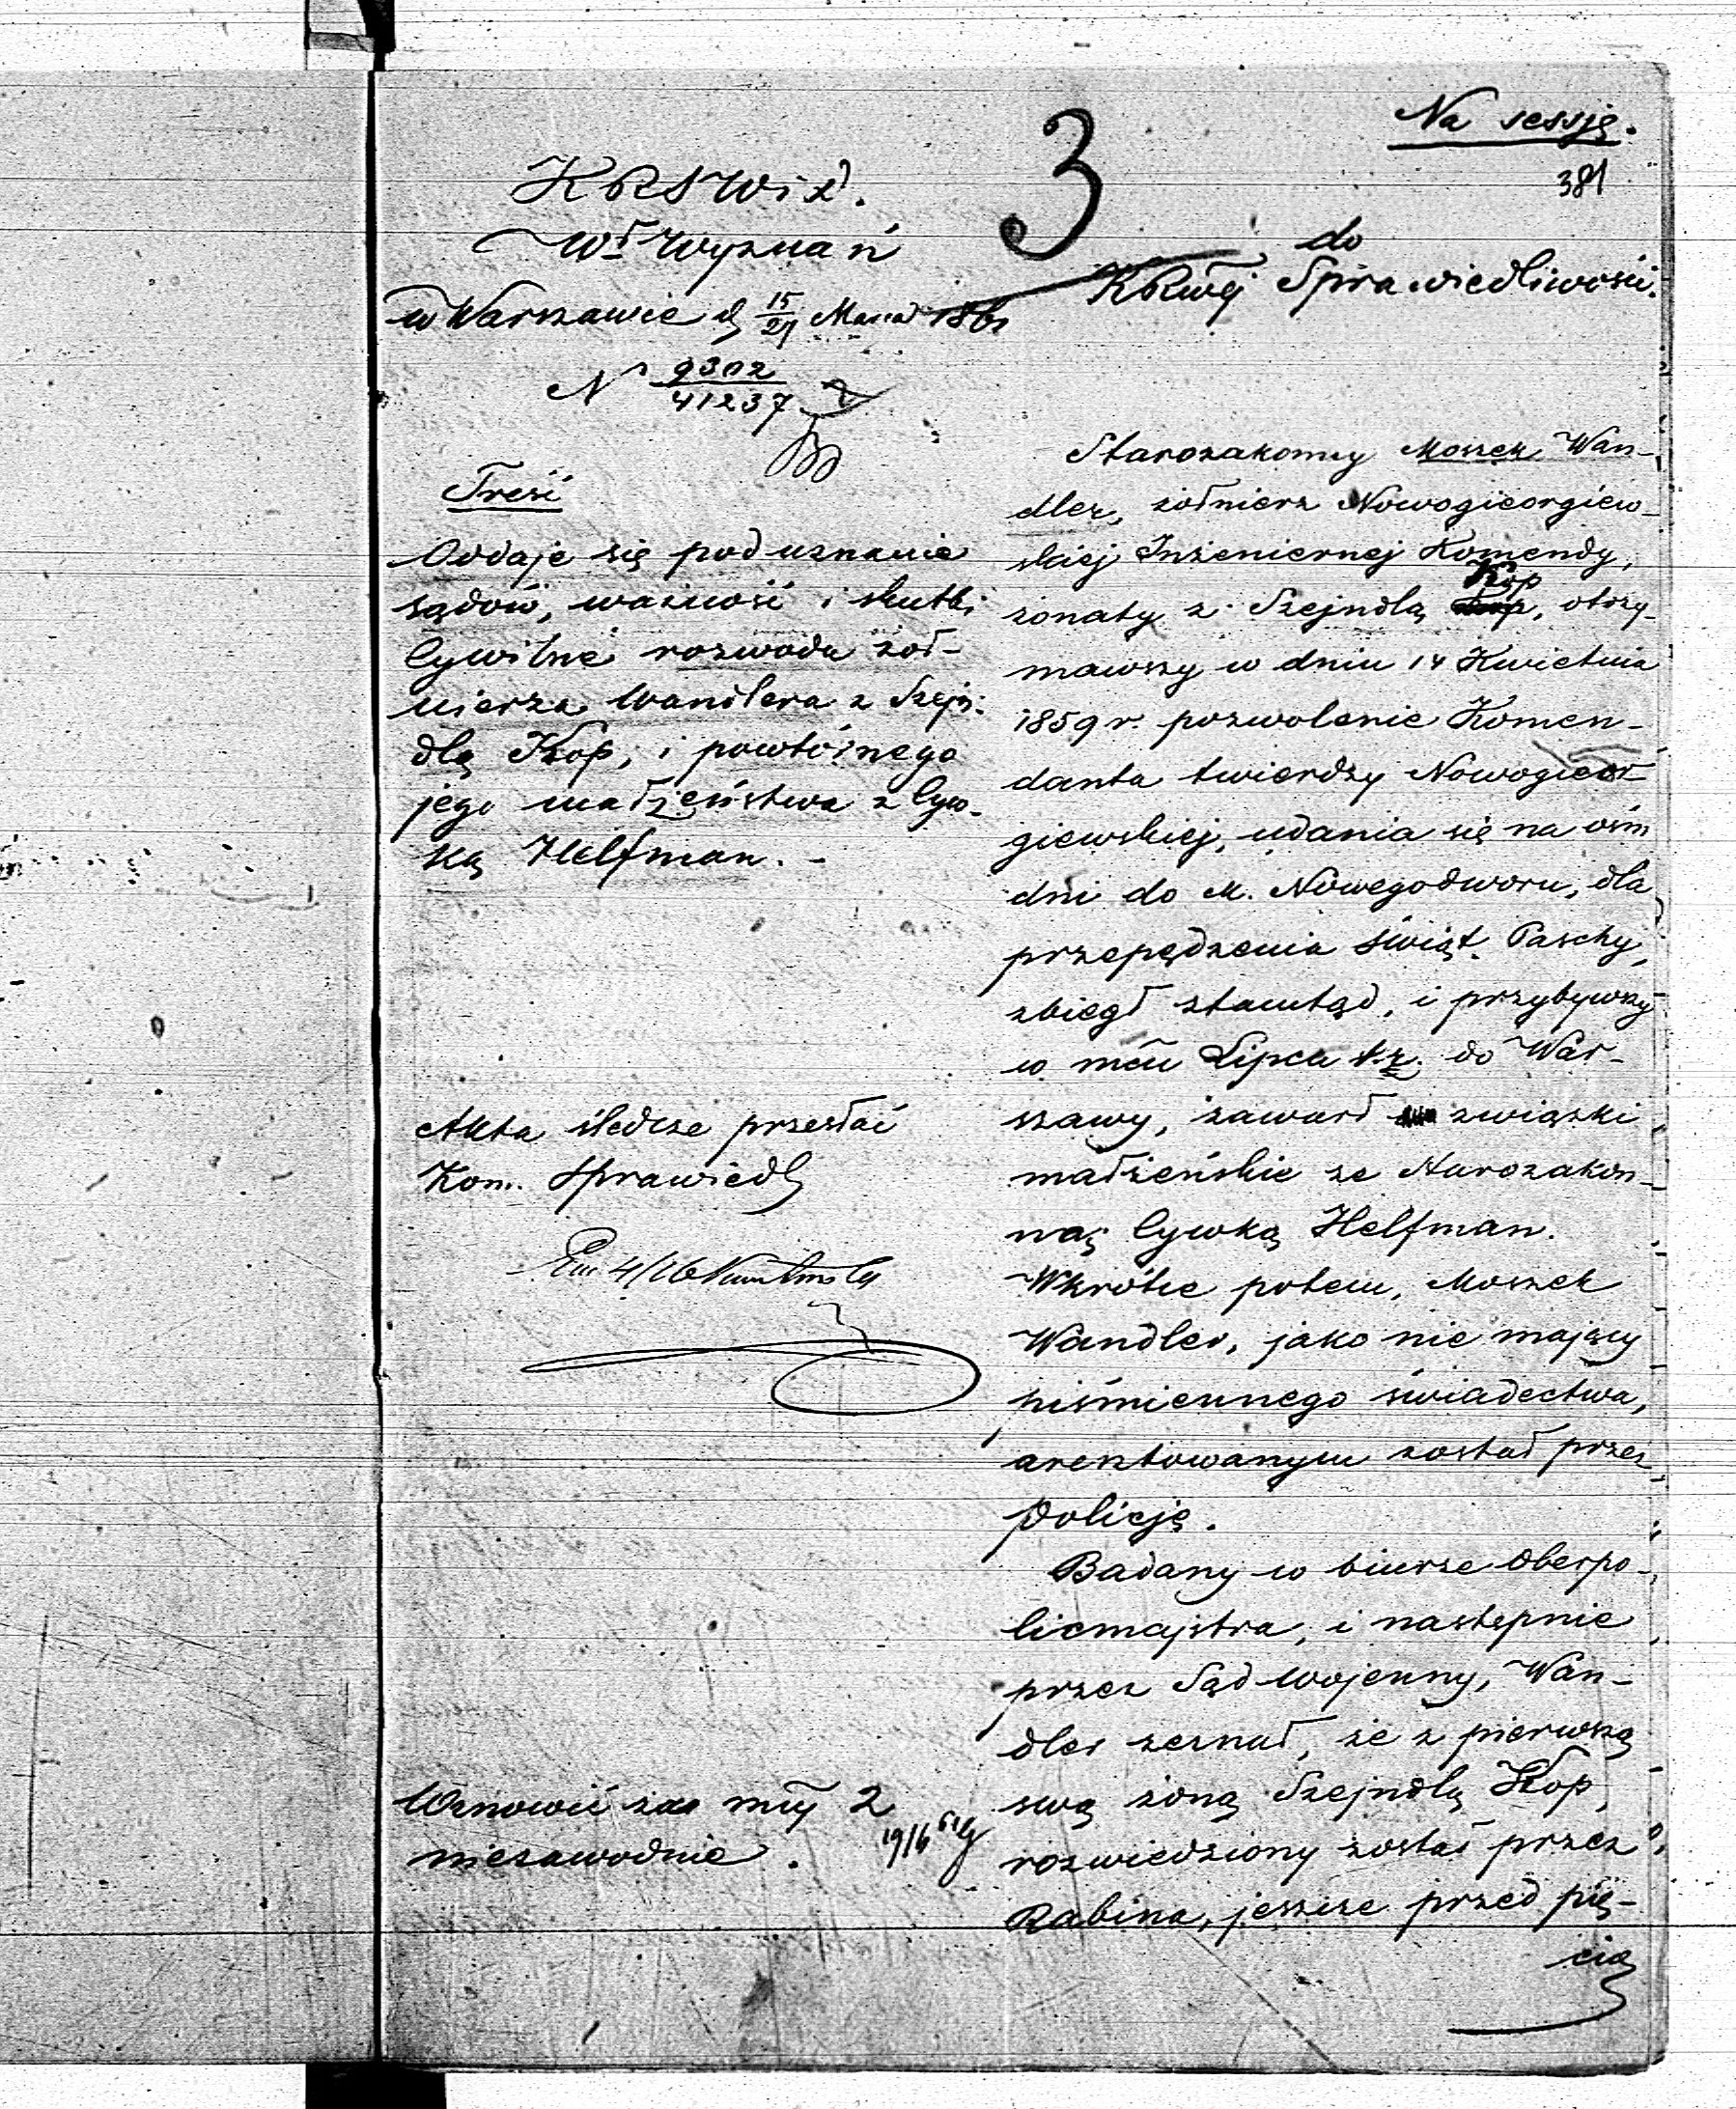 Na sessję.
381
3
KRSWiD.
Wł Wyznań
w Warszawie d 15/27 Marca 1861
N 9302/41237
do
KRwej Sprawiedliwości.
Treść
Oddaje się pod uznanie
sądów, ważność i skutki
cywilne rozwodu żoł-
nierza Wandlera z Szejn-
dlą Kop, i powtórnego
jego małżeństwa z Cyw-
ką Helfman. -
Akta śledcze przesłać
Kom. Sprawiedl
4/16
Wznowić za mcy 2
niezawodnie.
19/6 61
Starozakonny Moszek Wan-
dler, żołnierz Nowogieorgiew-
skiej Inżeniernej Komendy,
żonaty z Szejndlą Kop, otrzy-
mawszy w dniu 14 Kwietnia
1859 r. pozwolenie Komen-
danta twierdzy Nowogieor-
giewskiej, udania się na ośm
dni do M. Nowegodworu, dla
przepędzenia świąt Paschy,
zbiegł stamtąd, i przybywszy
w mcu Lipcu t.r. do War-
szawy, zawarł związki
małżeńskie ze Starozakon-
ną Cywką Helfman.
Wkrótce potem, Moszek
Wandler, jako nie mający
piśmiennego świadectwa,
aresztowanym został przez
Policję.
Badany w biurze Oberpo-
licmajstra, i następnie
przez Sąd Wojenny, Wan-
dler zeznał, że z pierwszą
swą żoną Szejndlą Kop,
rozwiedziony został przez
Rabina, jeszcze przed pię-
cią